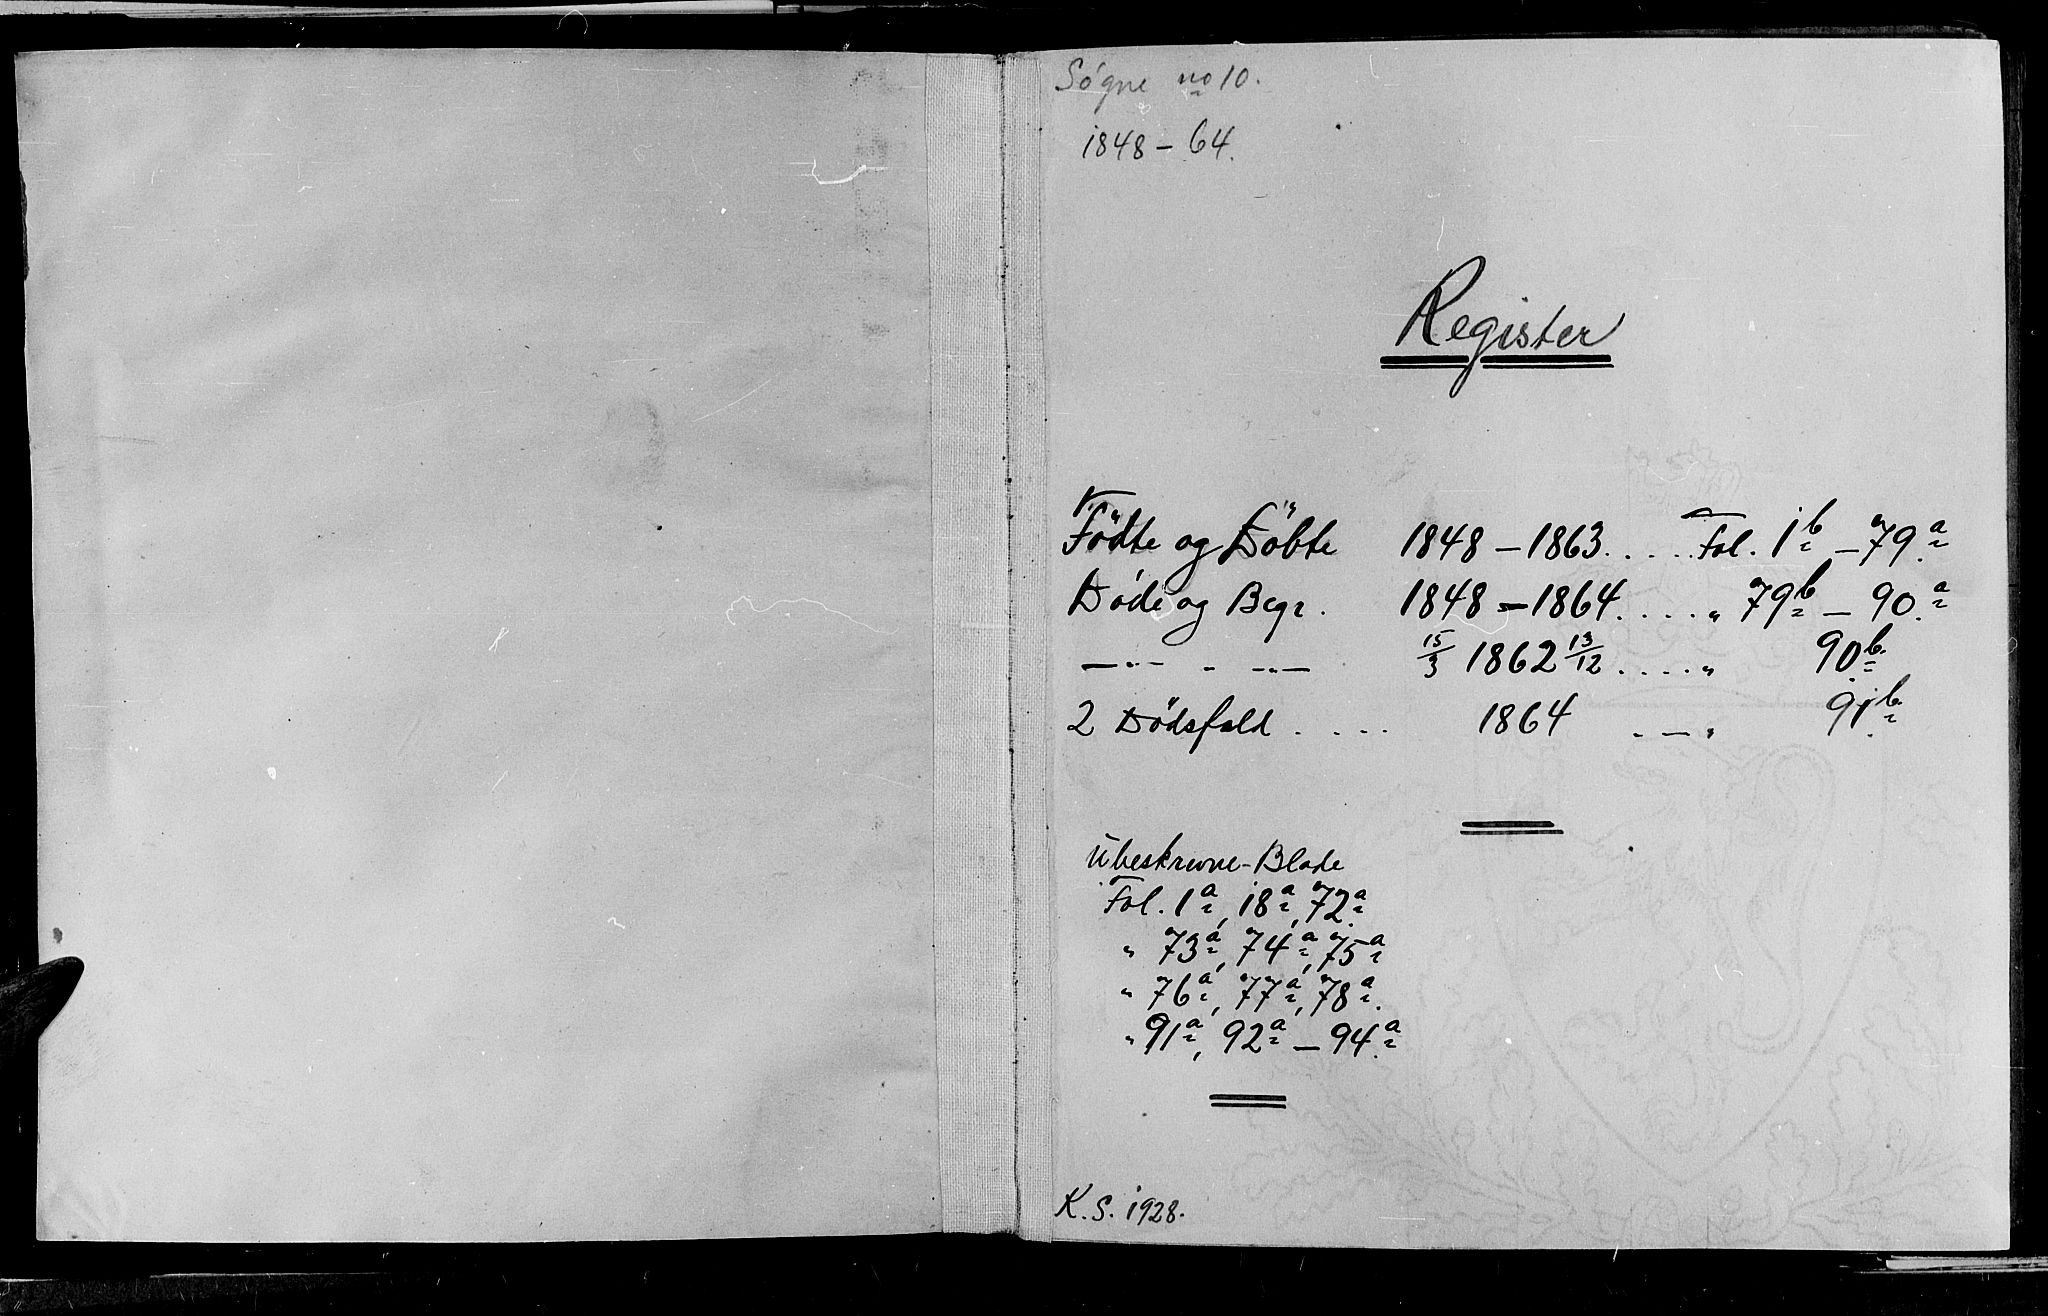 Søgne no 10.
1848 - 64.
Register
Födte og Döbte 1848 - 1863. . . . Fol. 1b - 79a
Døde og Begr. 1848 - 1864. . . . „ 79b - 90a
—„— „ —„— 15/3 1862 13/12. . . . „ 90b
2 Dödsfald . . . . 1864 . — „ 91b
Ubeskrevne-Blade
Fol. 1a, 18a, 72a
„ 73a, 74a, 75a
„ 76a, 77a, 78a.
„ 91a, 92a - 94a
K. S. 1928.